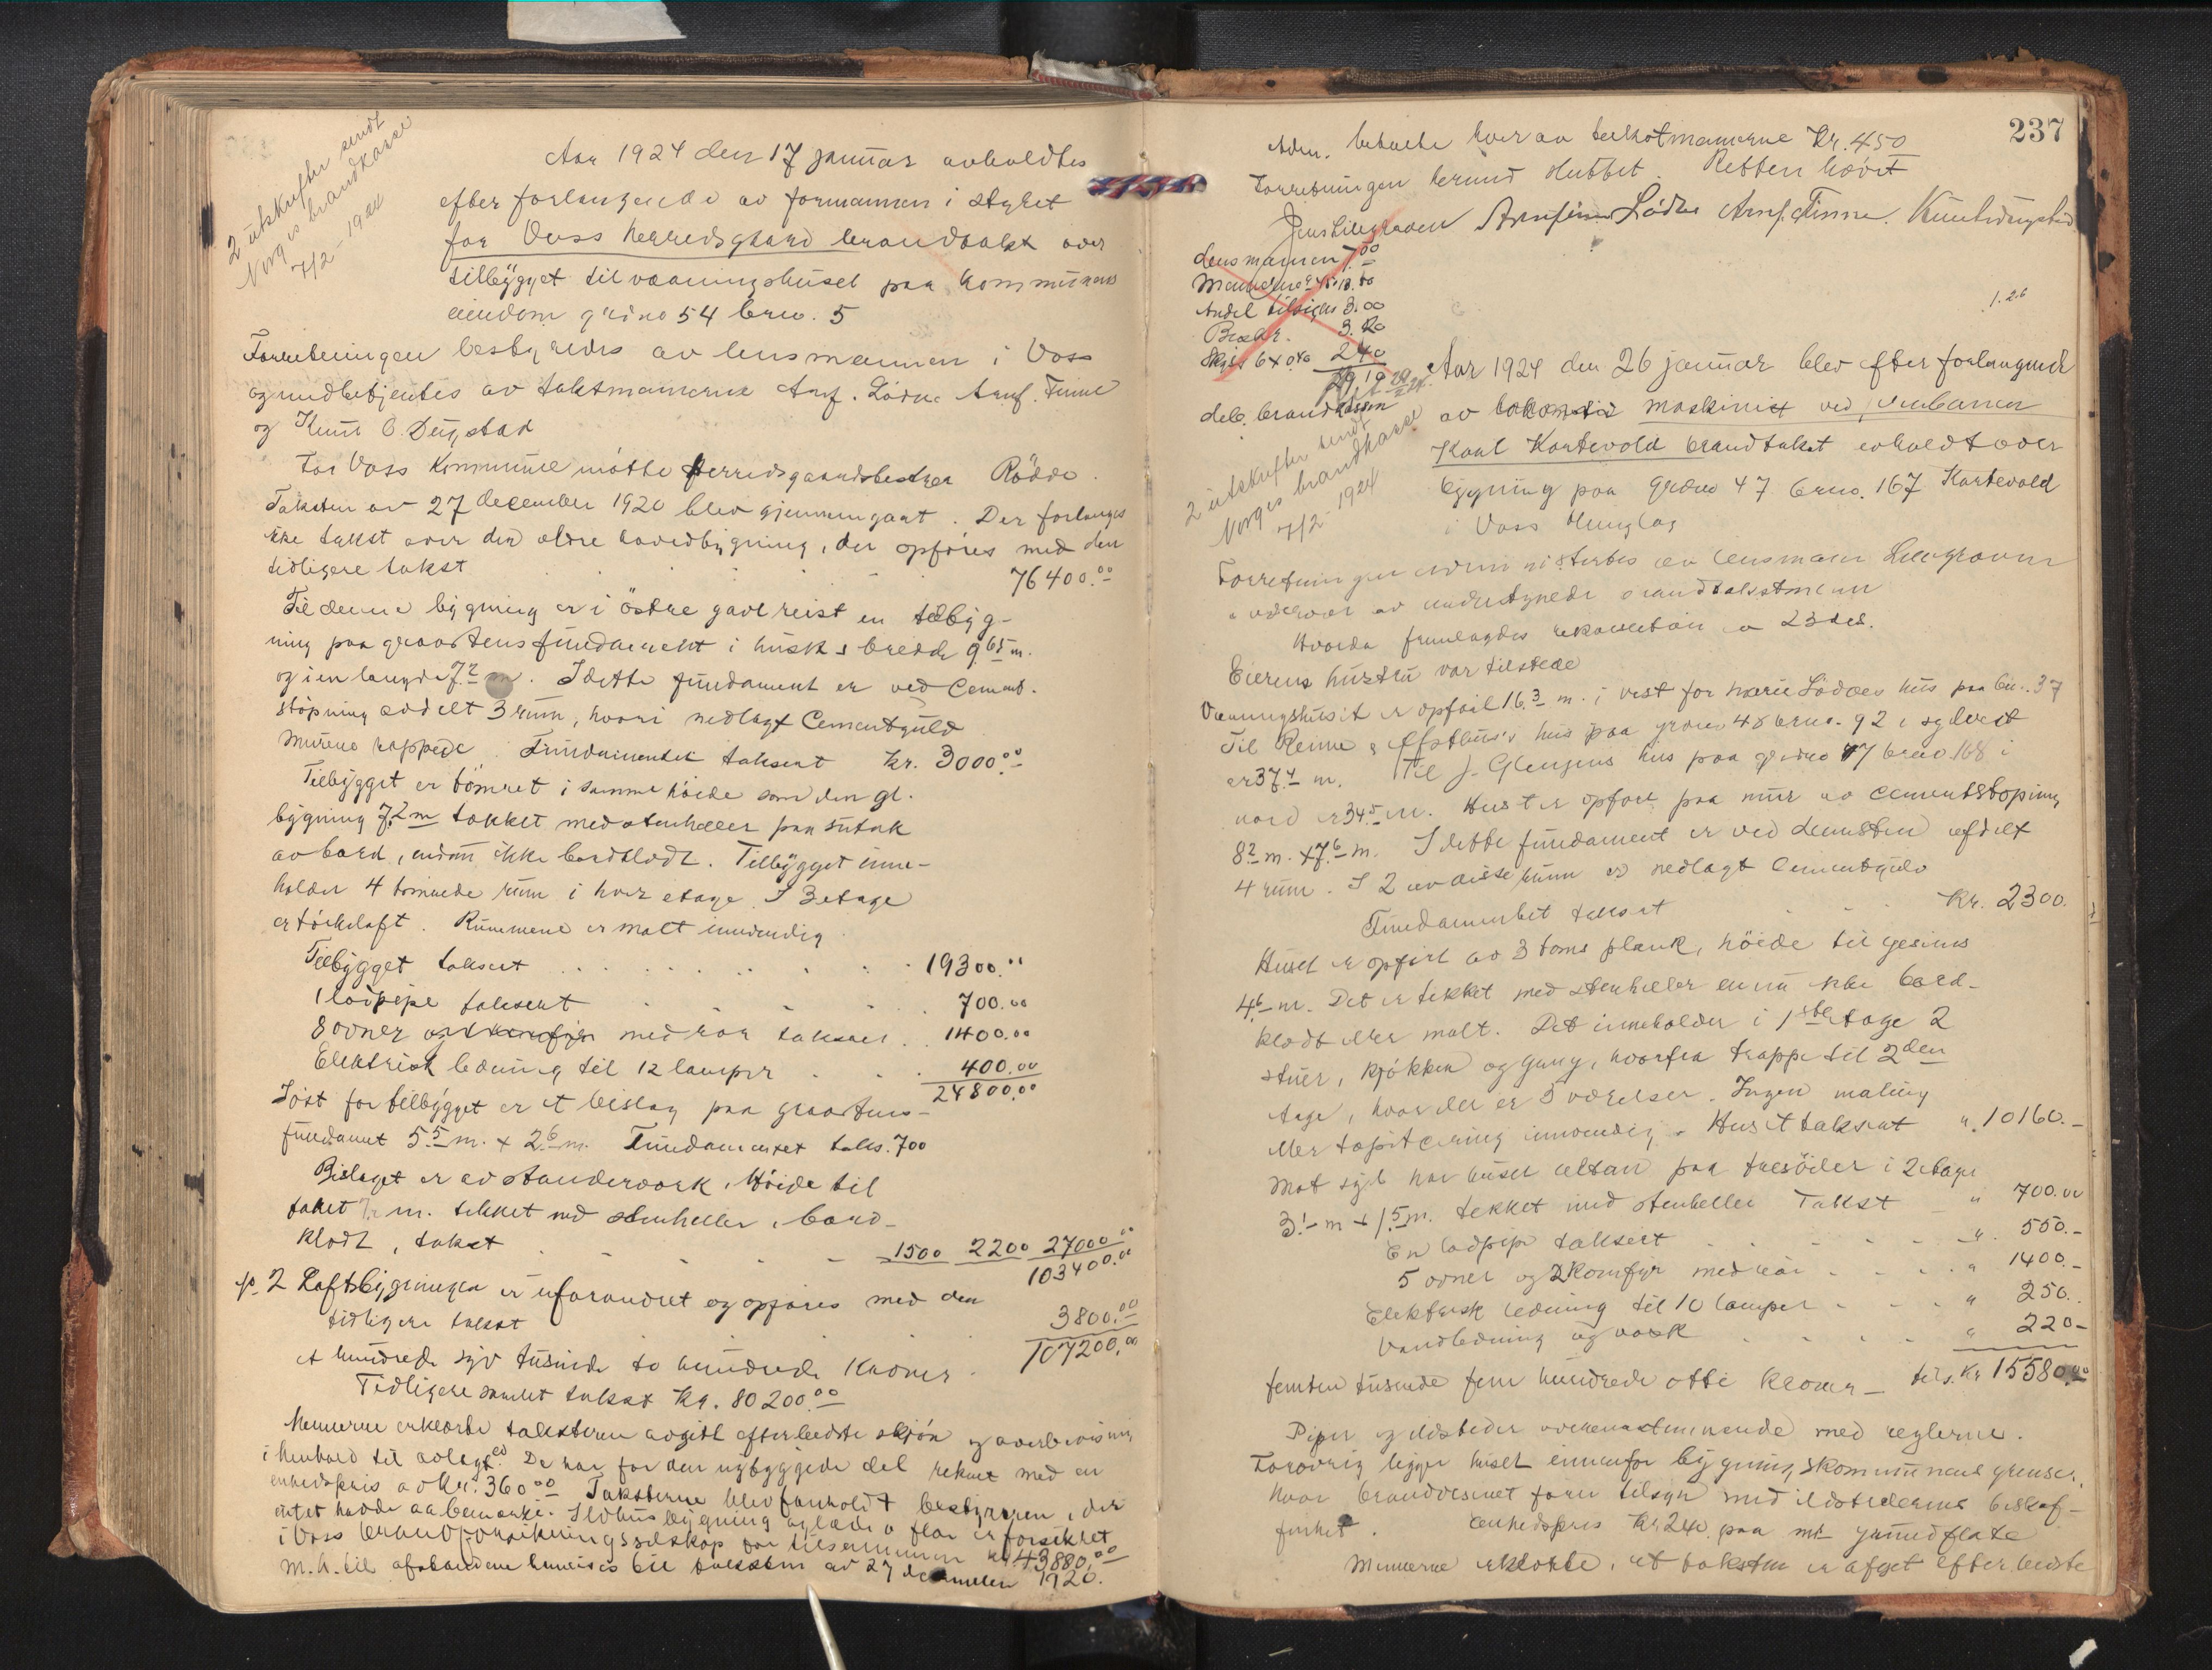 2 utskrifter sendt
Norges brandkasse
7/2-1924
Aar 1924 den 17 januar avholdtes
efter forlangende av formannen i styret
for Voss herredsgaard brandtakst over
tilbygget til vaaningshuset paa kommunens
eiendom grdno 54 brno. 5
Forretningen bestyredes av lensmannen i Voss
og medbetjentes av takstmannerne Arnf. Lödve Arnf. Finne
og Knut O. Dugstad
For Voss Kommune mötte Herredsgaardsbestyrer Rödde.
Taksten av 27 december 1920 blev gjennemgaat. Der forlanges
ikke takst over den ældre hovedbygning, der opföres med den
tidligere takst 76400.00
Til denne bygning er i östre gavl reist en tilbyg-
ning paa graastensfundament i husets bredde 9.65 m.
og i en længde 7.2 m. I dette fundament er ved Cement-
stöpning avdelt 3 rum, hvori nedlagt Cementguld
murene rappede. Fundamentet taksert kr. 3000.00
Tilbygget er tömret i samme höide som den gl.
bygning 7.2 m takket med stenheller paa sutak
av bord, endnu ikke bordklædt. Tilbygget inne-
holder 4 tömrede rum i hver etage. I 3 etage
er törkeloft. Rummene er malt innvendig
Tilbygget taksert 19300.00
1 ladpipe taksert 700.00
8 ovner og komfyr med rör taksert 1400.00
Elektrisk ledning til 12 lamper 400.00
24800.00
Föst for tilbygget er et bislag paa graastens-
fundamt 5.5 m. x 2.6 m. Fundamentet taks. 700
Bislaget er av standerverk, Höide til
taket m. tekket med stenheller, bord-
klædt, takst 1500 2200 27000.00
103400.00
p. 2 Loftsbygningen er uforandret og opföres med den
tidligere takst 3800.00
et hundrede syv tusinde to hundrede Kroner 107200.00
Tidligere samlet takst Kr. 80200.00
Mennerne erklærte taksten avgitt efter bedste skjön og overbevisning
i henhold til avlagt ed. De har for den nybyggede del reknet med en
enhedspris av kr. 360.00 Taksterne blev forholdt bestyreren, der
intet havde at bemerke. Ildhusbygning og er forsikret
i Voss brandforsikringsselskap for tilsammen kr 43880.00
M.h. til avstandene henvises til taksten av 27 december 1920.
237
Aden. betalte hver av takstmannerne Kr. 4.50
Forretningen hermed sluttet. Retten hævet
Jens Lilegraven Arnfinn Lödve Arnf. Finne. Knut Dugstad
Lensmannen 7.00
Mennene a 4.50 13.50
Andel tilsigelse 3.00
Bræhr. 3.20
Skjss 6 x 0.40 2.40
29.10
deb. brandkassen
1.26
2 utskrifter sendt
Norges brandkasse
7/2-1924
Aar 1924 den 26 januar blev efter forlangende
av lokomotiv maskinist ved jernbanen
Karl Kortevold brandtakst avholdt over
bygning paa grdno 47 brno. 167 Kortevold
i Voss thinglag
Forretningen administertes av lensmann Lilegraven
overvær av undertegnede brandtakstmenn
Hvorda fremlagdes rekvisition av 23 ds.
Eierens hustru var tilstede
Vaaningshuset er opfört 16.3 m. i vest for Marie Lödves hus paa bn. 37
Til Reime & hus paa grdno 48 brno. 92 i sydvest
er 37.4 m. Til J. Glenjens hus paa grdno 47 brno 168 i
nord er 34.5 m. Huset er opfört paa mur av cementstöpning
8.2 m. x 7.6 m. I dette fundament er ved avdelt
4 rum. I 2 av disse rum er nedlagt Cementgulv
Fundamentet taksert Kr. 2300.
Huset er opfört av 3 toms plank, höide til gesims
4.6 m. Det er tekket med stenheller ennu ikke bord-
klædt eller malt. Det inneholder i 1ste etage 2
stuer, kjökken og gang, hvorfra trappe til 2den
etage, hvor der er 3 værelser. Ingen maling
eller tapitsering innvendig. Huset taksert " 10160.-
Mot syd har huset altan paa træsöiler i 2 etage
3.1 m x 1.5 m. tekket med stenheller Takst " 700.00
En ladpipe taksert " 550.-
5 ovner og 2 komfyr med rör " 1400.-
Elektrisk ledning til 10 lamper " 250.-
Vandledning og vask " 220-
femten tusende fem hundrede otti kroner - tils. Kr 15580.00
Piper og ildsteder overensstemmende med reglerne.
Forövrig ligger huset innenfor bygningskommunens grenser,
hvor brandvesenet förer tilsyn med ildstedernes beskaf-
fenhet. Enhedspris kr 240 paa m2 grundflate
Mennerne erklærte, at taksten er afgit efter bedste